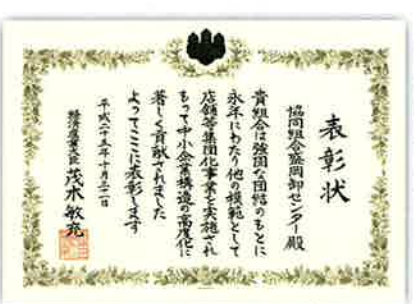 表彰状
協同組合盛岡卸センター殿
貴組合は強固な団結のもとに
永年にわたり他の模範として
店舗等集団化事業を実施され
もって中小企業構造の高度化に
著しく貢献されました
よってここに表彰します
平成二十五年十月二十一日
経済産業大臣 茂木敏充